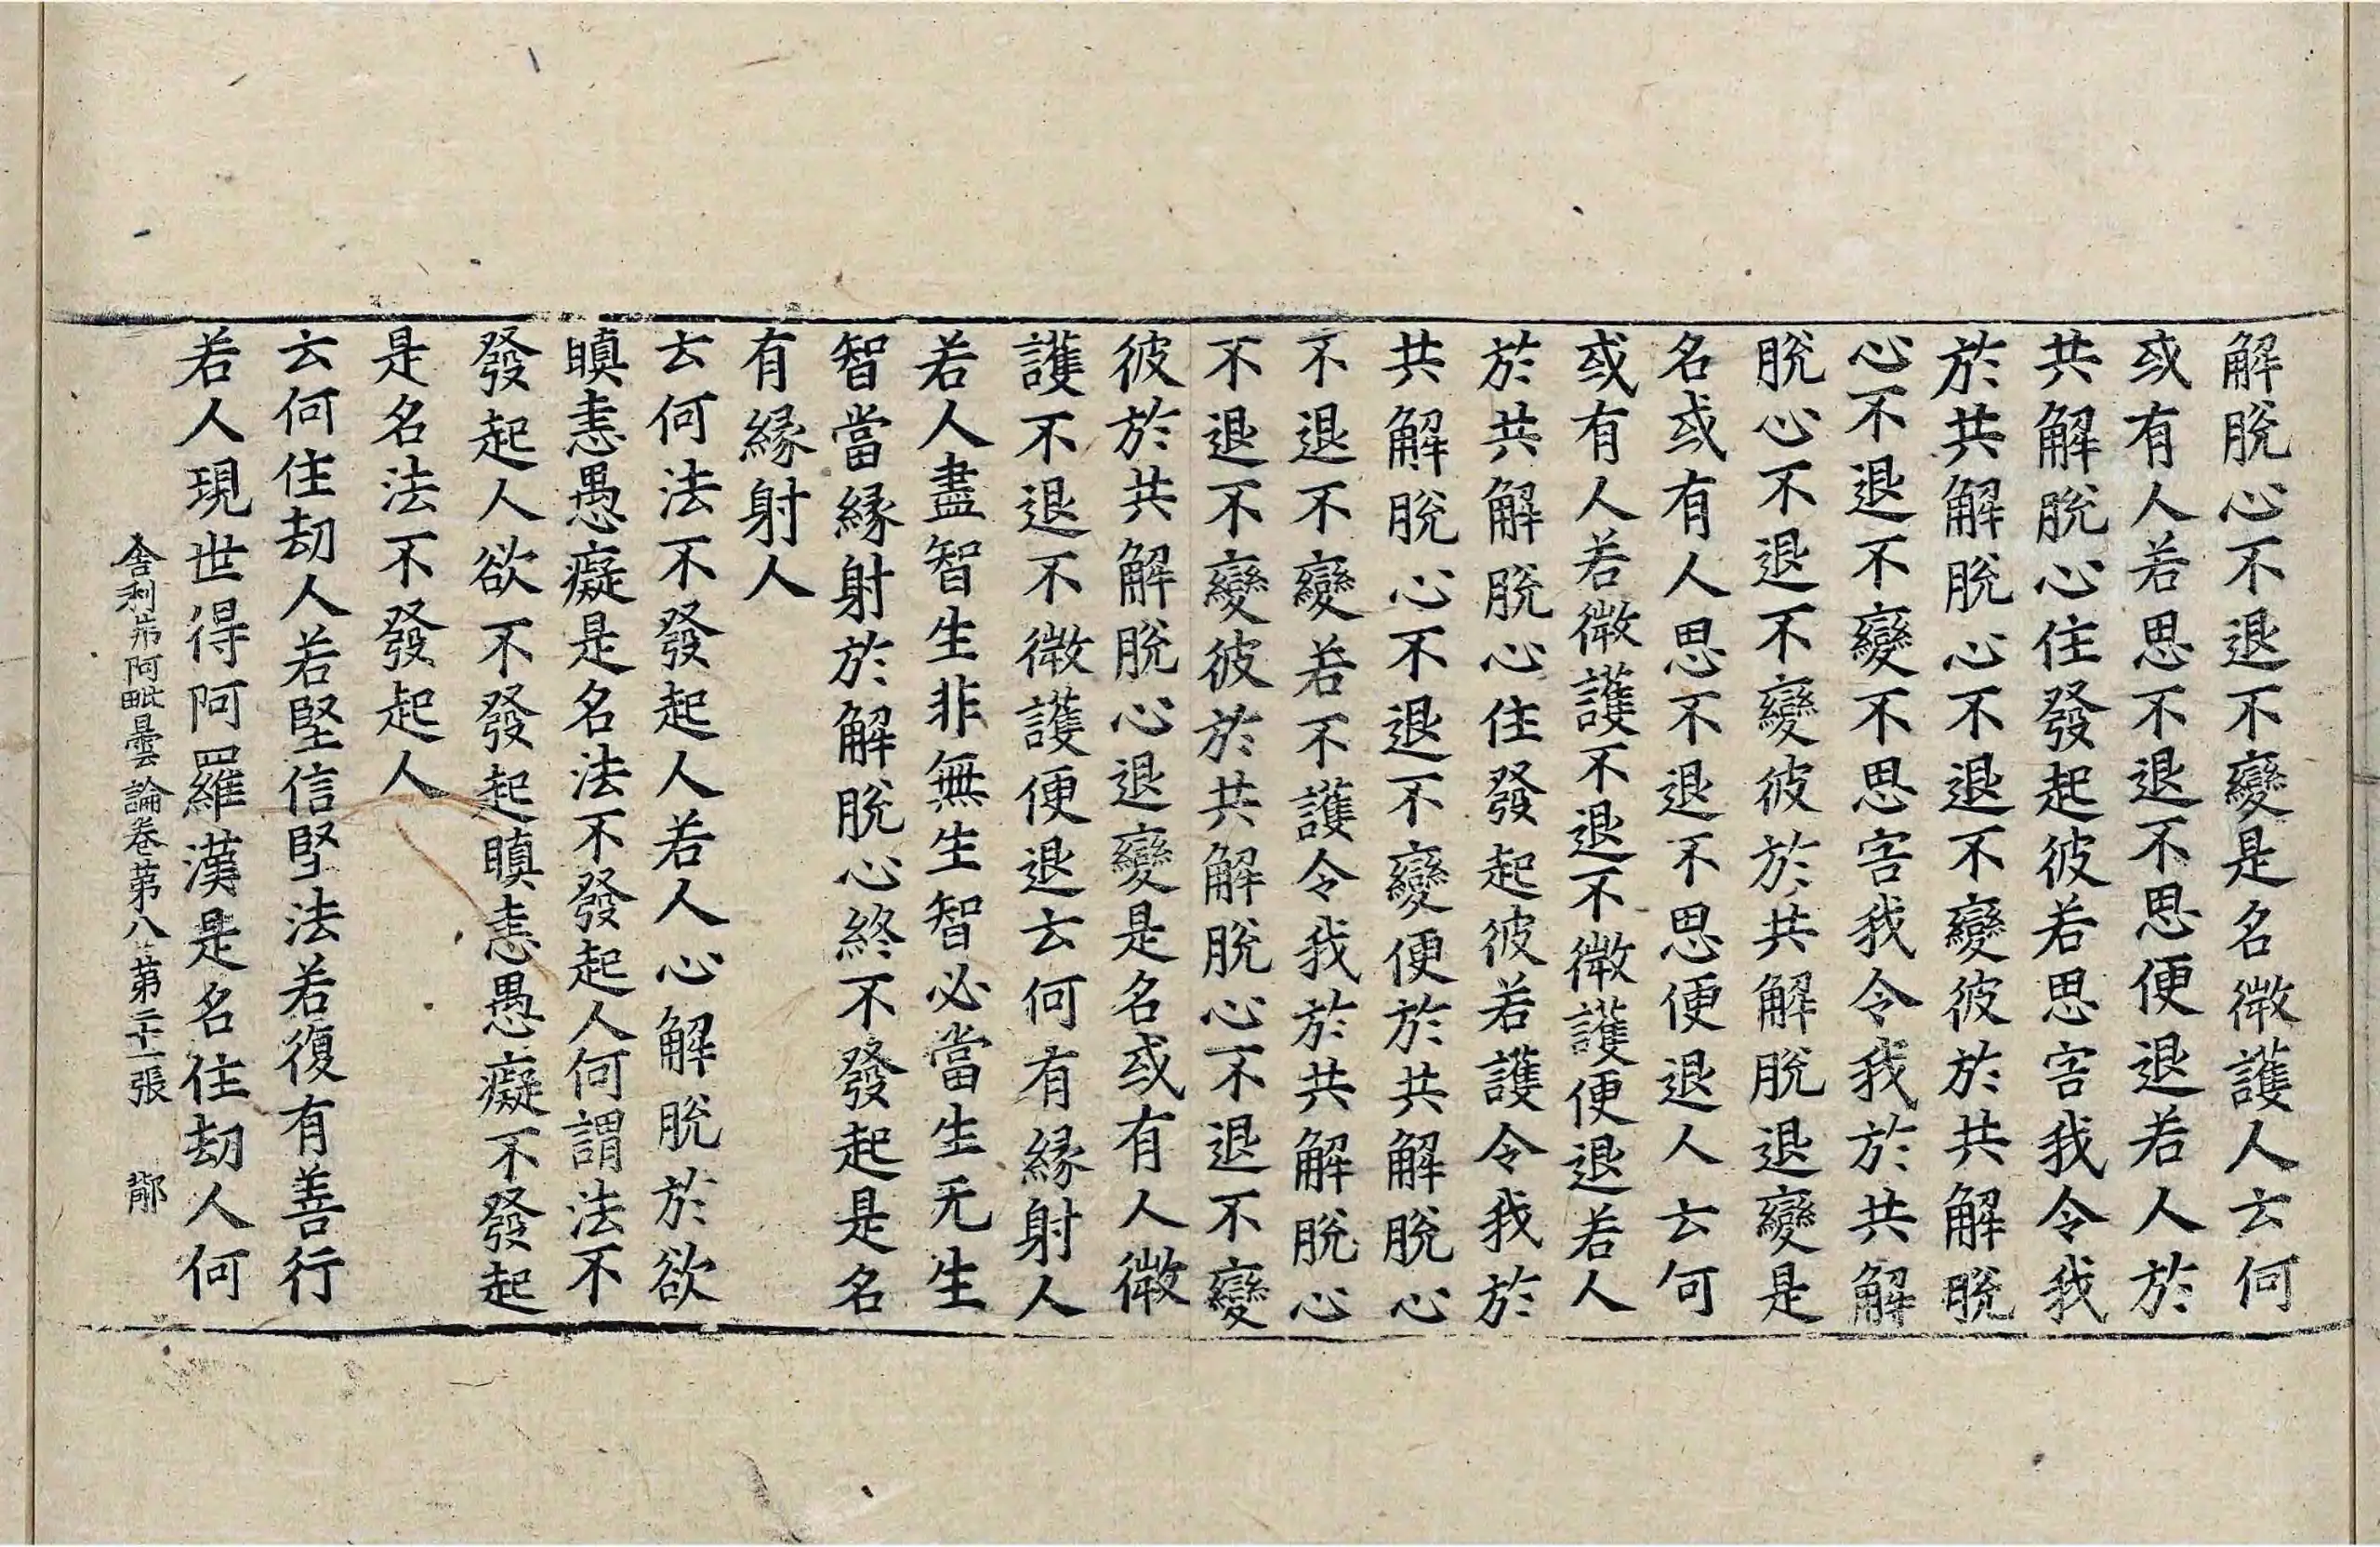 解脫心不退不變是名微護人云何
或有人若思不退不思便退若人於
共解脫心住發起彼若思害我令我
於共解脫心不退不變彼於共解脫
心不退不變不思害我令我於共解
脫心不退不變彼於共解脫退變是
名或有人思不退不思便退人云何
或有人若微護不退不微護便退若人
於共解脫心住發起彼若護令我於
共解脫心不退不變便於共解脫心
不退不變若不護令我於共解脫心
不退不變彼於共解脫心不退不變
彼於共解脫心退變是名或有人微
護不退不微護便退云何有緣射人
若人盡智生非無生智必當生无生
智當緣射於解脫心終不發起是名
有緣射人
云何法不發起人若人心解脫於欲
瞋恚愚癡是名法不發起人何謂法不
發起人欲不發起瞋恚愚癡不發起
是名法不發起人
云何住劫人若堅信堅法若復有善行
若人現世得阿羅漢是名住劫人何
舍利弗阿毗曇論卷第八 第二十一張